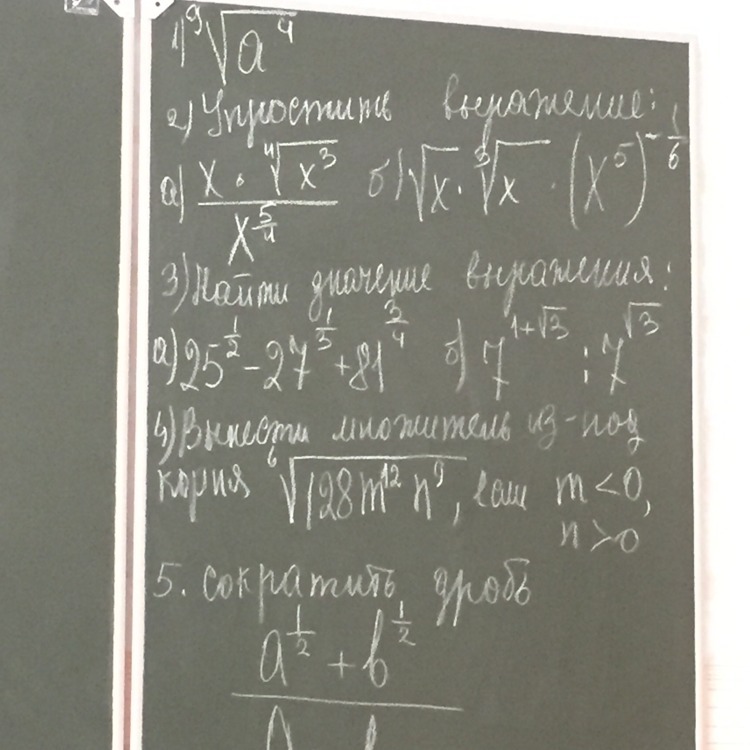 1) ⁹√a⁴
2) Упростить выражение:
а) (x · ⁴√x³) / x^(5/4) б) √x · ³√x · (x⁵)^(-1/6)
3) Найти значение выражения:
а) 25^(1/2) - 27^(1/3) + 81^(3/4) б) 7^(1+√3) : 7^(√3)
4) Вынести множитель из-под
корня ⁶√(128m¹²n⁹), если m < 0,
n > 0
5. сократить дробь
a^(1/2) + b^(1/2)